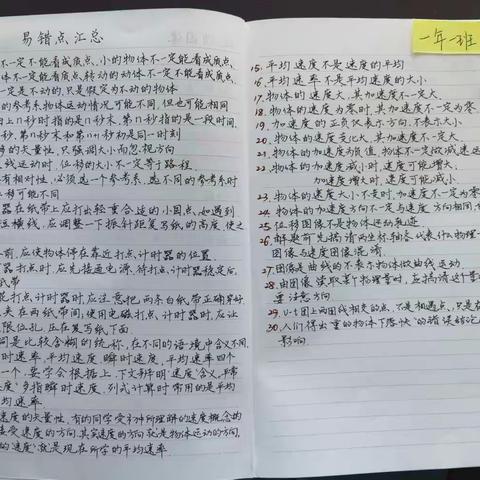 易错点汇总
不一定不能看成质点、小的物体不一定能看成质点、
体不一定不能看成质点,转动的动体不一定不能看成质点
一定是不动的,只是假定为不动的物体
的参考系物体运动情况可能不同,但也可能相同
上n秒时指的是n秒末.第n秒指的是一段时间.
秒.第n秒末和第n+1秒初是同一时刻
的矢量性,只强调大小而忽视方向
线运动时,位移的大小不一定等于路程
有相对性,必须选一个参考系,选不同的参考系时
移可能不同
器在纸带上应打出轻重合适的小圆点,如遇到
短横线,应调整一下振针距复写纸的高度,使之
前,应使物体停在靠近打点计时器的位置
打点时,应先接通电源,待打点计时器稳定后,
纸带
打点计时器时,应注意把两条白纸带正确穿好
夹在两纸带间,使用电磁打点计时器时,应让
限位孔,压在复写纸下面
是比较含糊的统称,在不同的语境中含义不同,
时速率,平均速度 瞬时速度,平均速率四个
一个.要学会根据上、下文辨明"速度"含义.平常
速度"多指瞬时速度,列式计算时常用的是平均
均速率
速度的矢量性,有的同学受初中所理解的速度概念的
接受速度的方向,其实速度的方向就是物体运动的方向,
的"速度"就是现在所学的平均速率
一年一班
15.平均速度不是速度的平均
16.平均速率不是平均速度的大小
17.物体的速度大,其加速度不一定大
18.物体的速度为零时,其加速度不一定为零
19.加速度的正负仅表示方向,不表示大小
20.物体的速度变化大,其加速度不一定大
21.物体的加速度为负值,物体不一定做减速运
22.物体的加速度减小时,速度可能增大,
加速度增大时,速度可能减小.
23.物体的速度大小不变时,加速度不一定为零
24.物体的加速度方向不一定与速度方向相同,
25.位移图像不是物体的运动轨迹
26.解题前先搞清两坐标轴各代表什么物理
图像与速度图像混淆
27.图像是曲线的不表示物体做曲线运动
28.由图像读取某个物理量时,应搞清这个量
要注意方向
29.v-t图上两图线相交的点,不是相遇点,只是在
30.人们得出"重的物体下落快"的错误结论
影响.